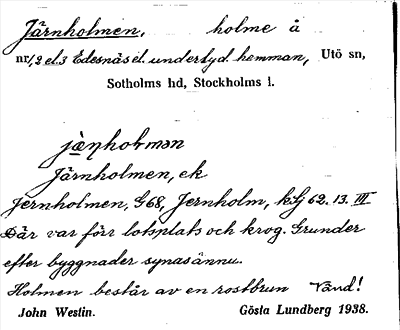 Järnholmen, holme å
nr 1, 2 el. 3 Edesnäs el. underlyd. hemman, Utö sn,
Sotholms hd, Stockholms l.
Järnholmen, ek
Jernholmen, G 68, Jernholm, klj 62. 13. III
Där var förr lotsplats och krog. Grunder
efter byggnader synas ännu.
Holmen består av en rostbrun Vänd!
John Westin. Gösta Lundberg 1938.